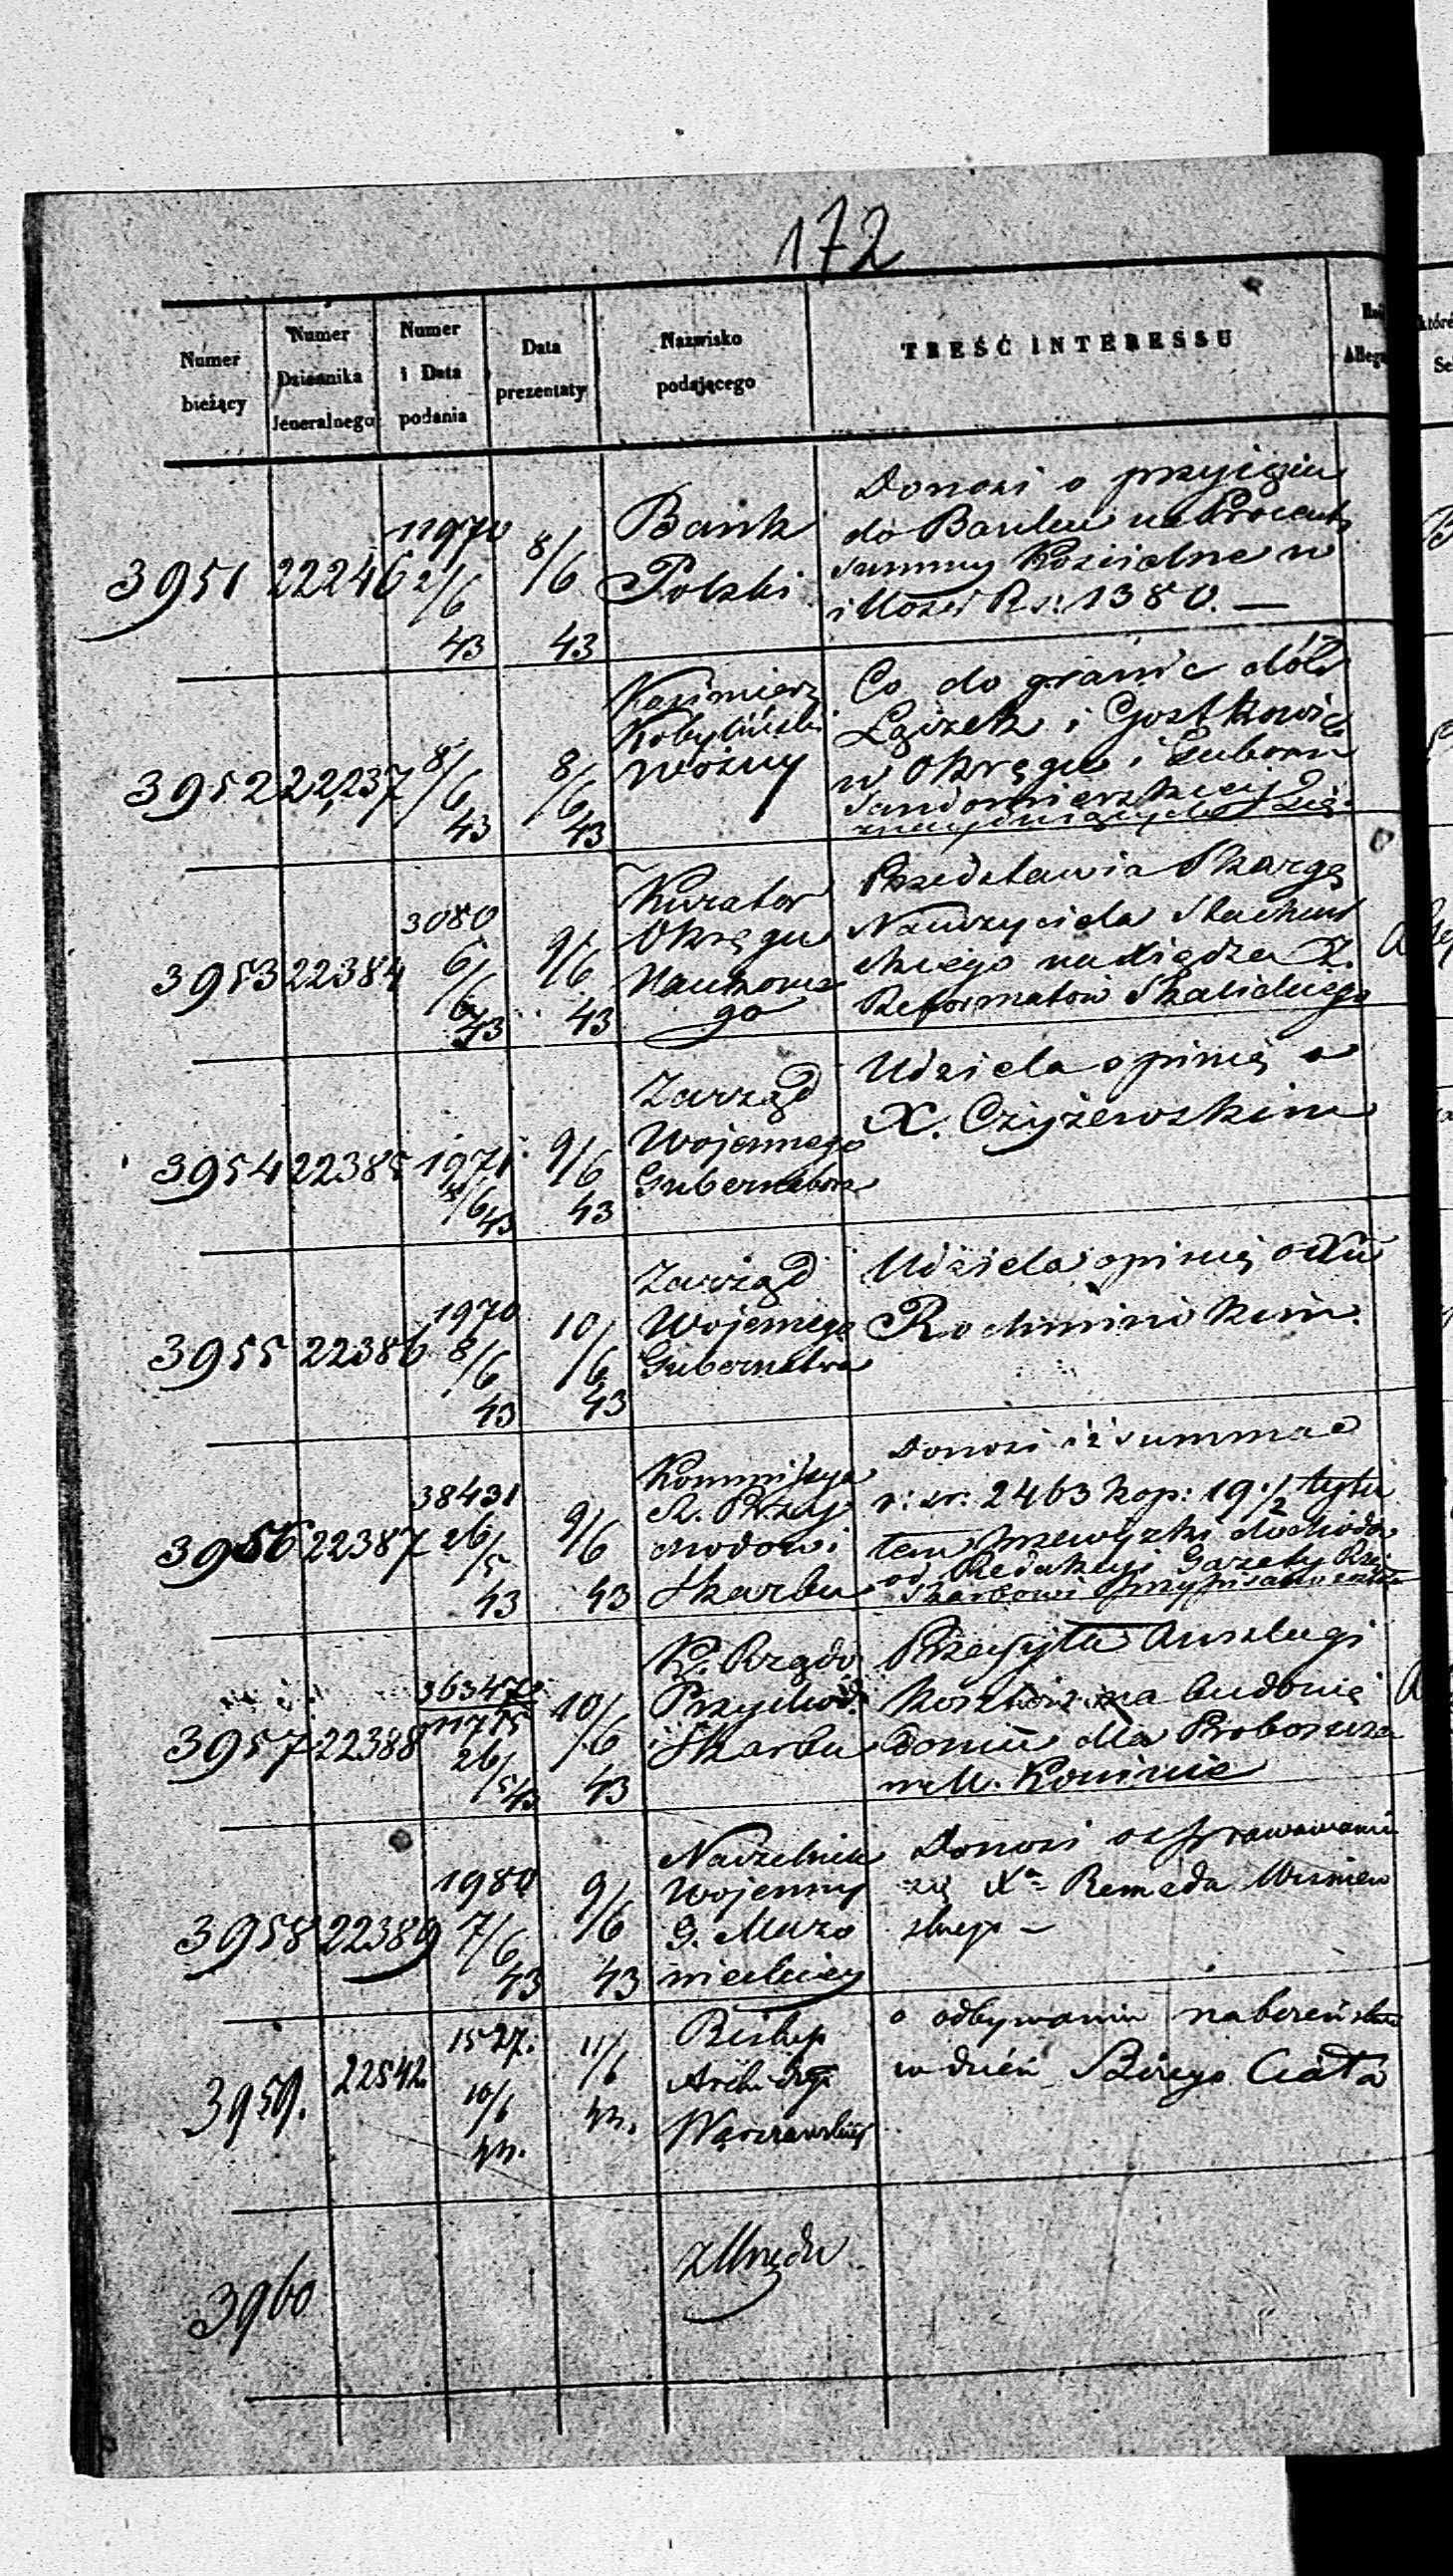 172
Numer bieżący
Numer Dziennika Jeneralnego
Numer i Data podania
Data prezentaty
Nazwisko podającego
TREŚĆ INTERESSU
3951 22246 11970 2/6 43 8/6 43
Bank
Polski
Donosi o przyjęciu
do Banku na Procent
summy Kościelne w
ilości Rs: 1380. —
3952 22237 8/6 43 8/6 43
Kazimierz
Kobyliński
Woźny
Co do granic dóbr
Łążek i Gostkowic
w Okręgu i Gubern
Sandomierskiej
3953 22384 3080 6/6 43 9/6 43
Kurator
Okręgu
Naukowe
go
Przedstawia Skargę
Nauczyciela
skiego na Xiędza Z.
Reformatów Skalickiego
3954 22385 1971 8/6 43 9/6 43
Zarząd
Wojennego
Gubernatora
Udziela opinię o
X. Czyżewskim
3955 22386 1970 8/6 43 10/6 43
Zarząd
Wojennego
Gubernatora
Udziela opinię o Xu
3956 22387 38431 26/5 43 9/6 43
Kommissya
R. Przy
chodów i
Skarbu
Donosi iż summa
r: sr: 2463 kop: 19 1/2 tytu
łem przewyżki dochodów
od Redakcyi Gazety Rzą
Skarbowi przypisano
3957 22388 363470 11775 26/5 43 10/6 43
K. Rządo
Przychod:
i Skarbu
Przesyła Anszlagi
kosztów na budowię
domu dla Proboszcza
w M. Koninie
3958 22389 1980 7/6 43 9/6 43
Naczelnik
Wojenny
G. Mazo
wieckiey
Donosi o sprawowaniu
się Xa Remeda Wiśniew
skiego —
3959. 22542. 1527. 10/6 43. 11/6 43.
Biskup
Archidyec
Warszawskiey
o odbywaniu nabożeństwa
w dzień Bożego Ciała
3960
z Urzędu